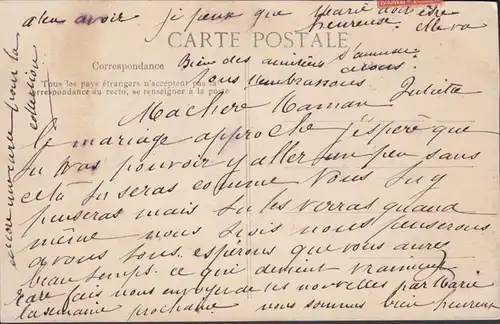 a les avoir je pense que Marie doit être
heureuse. elle va
CARTE POSTALE
Correspondance
Tous les pays étrangers n'acceptent pas la
correspondance au recto, se renseigner à la poste
Bien des amitiés
s'amuser
a vous.
Tous embrassons
Julietta
Ma chère Maman
le mariage approche j'espère que
tu vas pouvoir y aller un peu sans
cela tu seras comme nous tu y
penseras mais tu les verras quand
même nous d'ici nous penserons
a vous tous. espérons que vous aurez
beau temps. ce qui devient vraiment
rare fais nous envoyer de tes nouvelles par Marie
la semaine prochaine nous sommes bien heureux
encore une carte pour la
collection